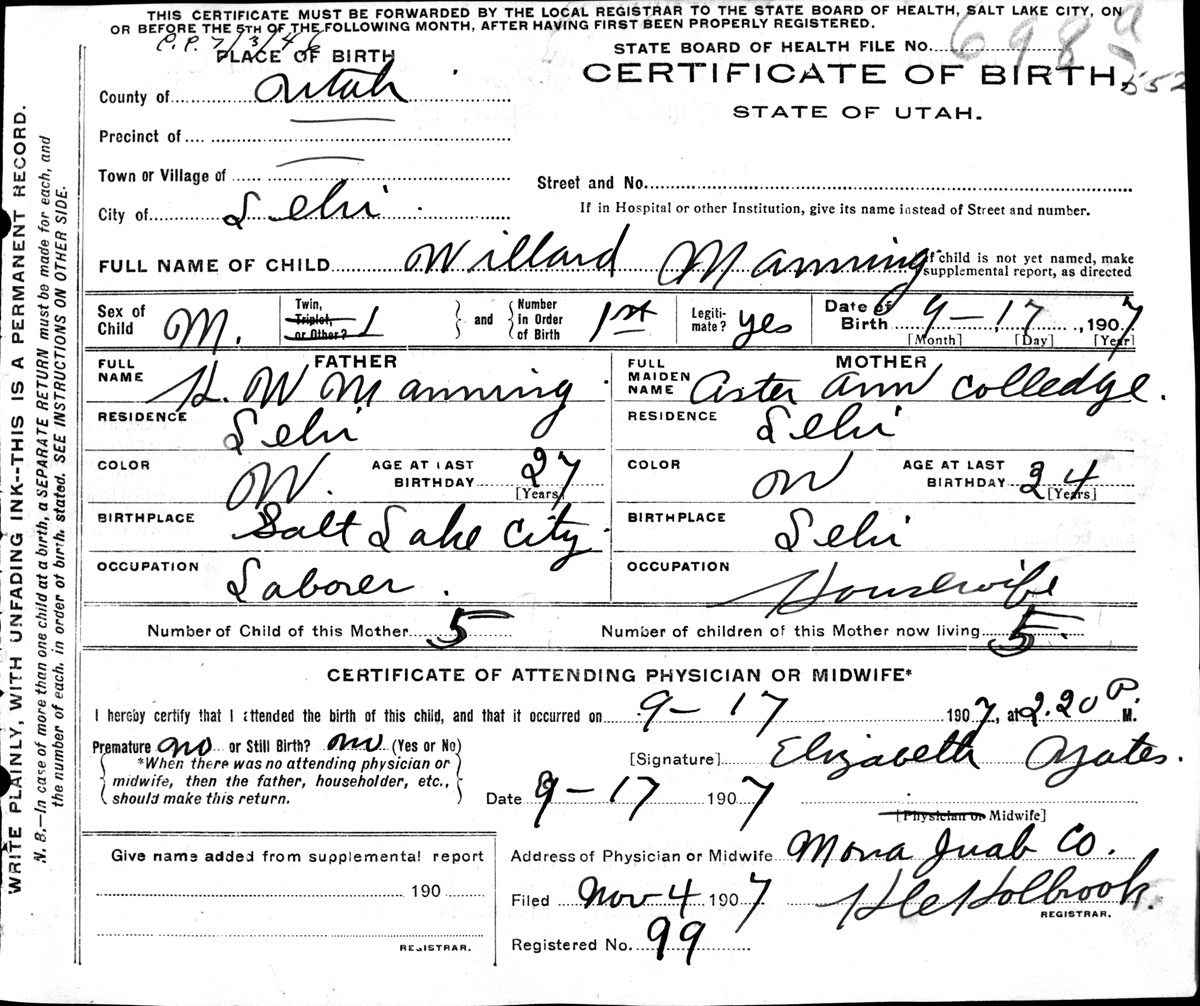 THIS CERTIFICATE MUST BE FORWARDED BY THE LOCAL REGISTRAR TO THE STATE BOARD OF HEALTH, SALT LAKE CITY, ON
OR BEFORE THE 5TH OF THE FOLLOWING MONTH, AFTER HAVING FIRST BEEN PROPERLY REGISTERED.
PLACE OF BIRTH
STATE BOARD OF HEALTH FILE NO.
CERTIFICATE OF BIRTH,
552
County of Utah
STATE OF UTAH.
Precinct of
Town or Village of
Street and No.
City of Lehi
If in Hospital or other Institution, give its name instead of Street and number.
FULL NAME OF CHILD Willard Manning If child is not yet named, make supplemental report, as directed
Sex of Child M. Twin, Triplet, or Other? 1 and Number in Order of Birth 1st Legitimate? yes Date of Birth 9-17, 1907
[Month] [Day] [Year]
FATHER MOTHER
FULL NAME H. W Manning. FULL MAIDEN NAME Aster Ann Colledge.
RESIDENCE Lehi RESIDENCE Lehi
COLOR W. AGE AT LAST BIRTHDAY 27 [Years] COLOR W AGE AT LAST BIRTHDAY 34 [Years]
BIRTHPLACE Salt Lake City BIRTHPLACE Lehi
OCCUPATION Laborer. OCCUPATION Housewife
Number of Child of this Mother 5 Number of children of this Mother now living 5.
CERTIFICATE OF ATTENDING PHYSICIAN OR MIDWIFE*
I hereby certify that I attended the birth of this child, and that it occurred on 9-17 1907, at 2.20 P. M.
Premature no or Still Birth? no (Yes or No)
*When there was no attending physician or midwife, then the father, householder, etc., should make this return.
[Signature] Elizabeth Yates.
Date 9-17 1907
[Physician or Midwife]
Give name added from supplemental report
190
REGISTRAR.
Address of Physician or Midwife Mona Juab Co.
Filed Nov-4 1907 Holbrook.
REGISTRAR.
Registered No. 99
WRITE PLAINLY, WITH UNFADING INK--THIS IS A PERMANENT RECORD.
N. B.--In case of more than one child at a birth, a SEPARATE RETURN must be made for each, and
the number of each, in order of birth, stated. SEE INSTRUCTIONS ON OTHER SIDE.